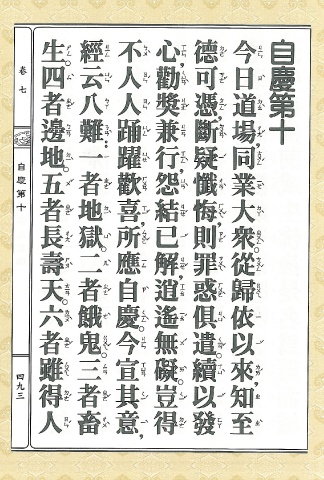 自慶第十
今日道場,同業大眾,從歸依以來,知至
德可憑,斷疑懺悔,則罪惑俱遣,續以發
心,勸獎兼行,怨結已解,逍遙無礙,豈得
不人人踊躍歡喜,所應自慶,今宣其意,
經云八難:一者地獄。二者餓鬼。三者畜
生。四者邊地。五者長壽天。六者雖得人
卷七
自慶第十
四九三